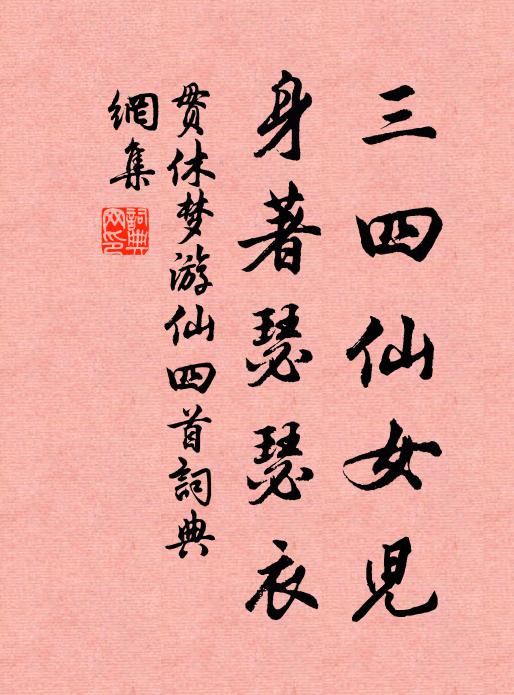 三四仙女児
身著瑟瑟衣
贯休梦游仙四首詞典
網集
詞典
网印